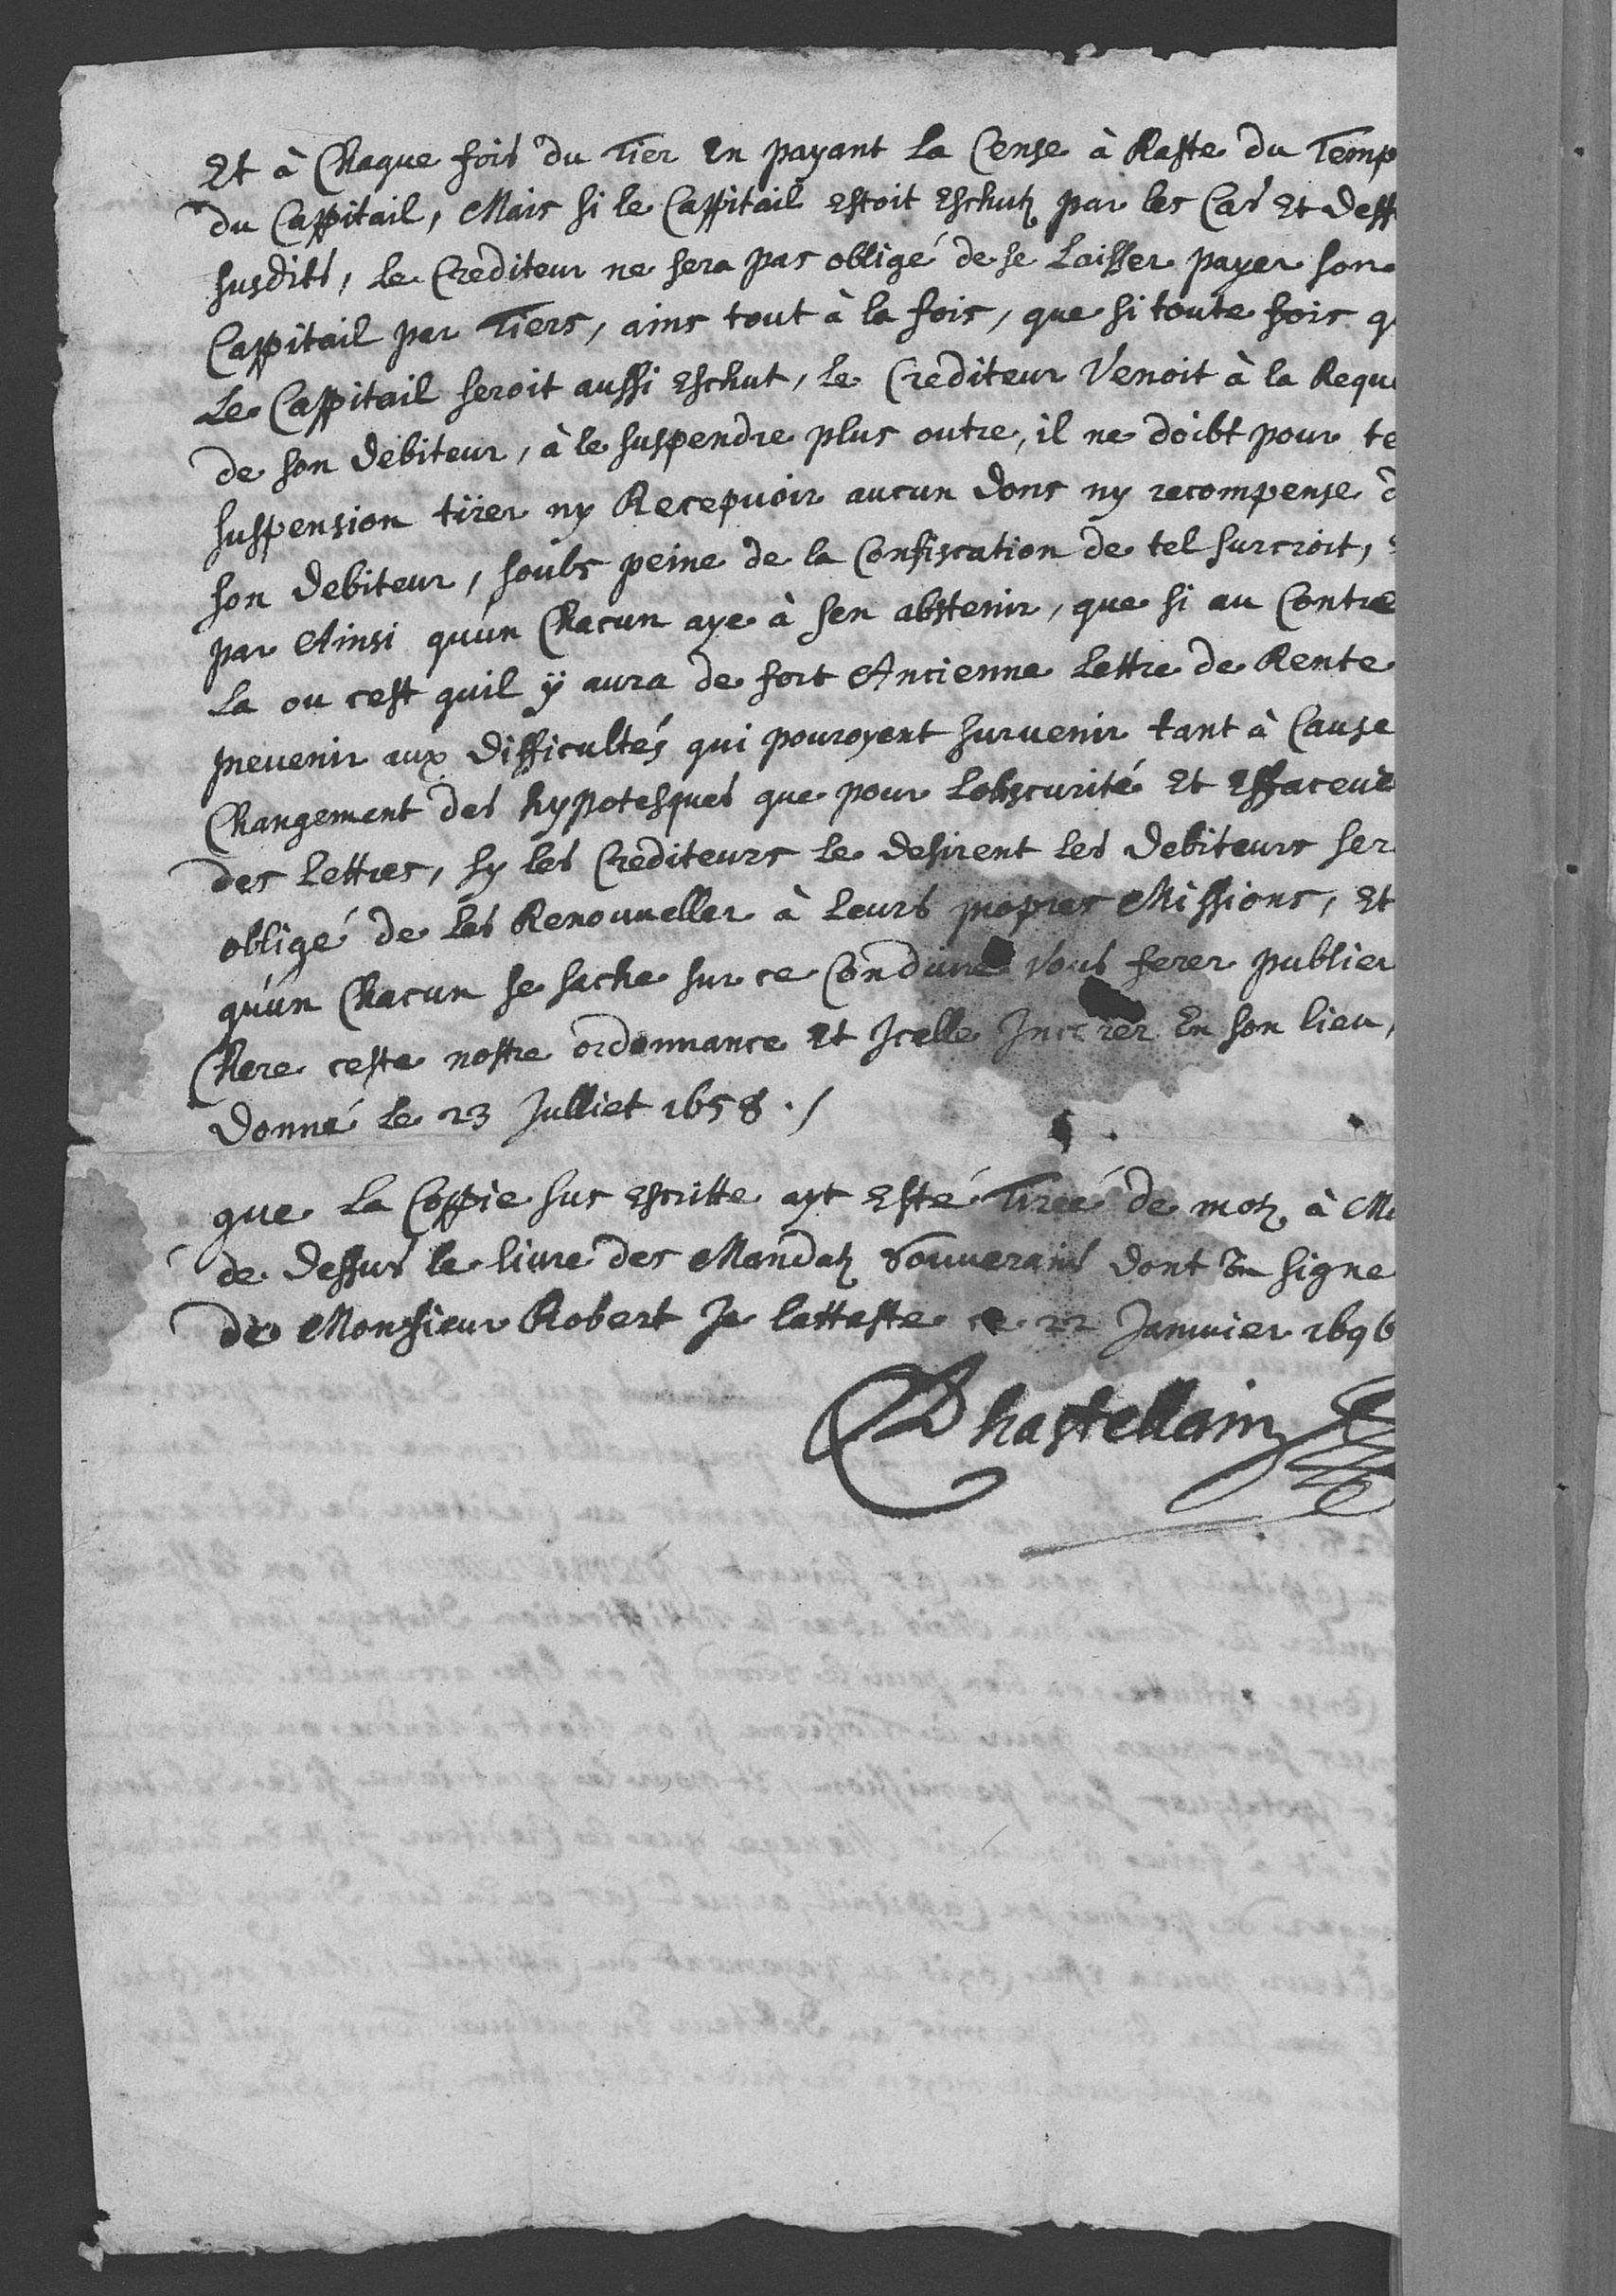 Et à Chaque fois du Tier En payant la Cense à Raste du Temp
du Cappitail, Mais si le Cappitail Estoit Eschutz par les Cas Et deff
susdits, le Crediteur ne sera pas obligé de se Laisser payer son
Cappitail par Tiers, ains tout à la fois, que si toute fois q
Le Cappitail seroit aussi Eschut, le Crediteur Venoit à la Reque
de son debiteur, à le suspendre plus outre, il ne doibt pour te
suspension tirer ny Recepvoir aucun dons ny recompense d
son debiteur, soubs peine de la Confiscation de tel surcroit,
par Ainsi qu'un Chacun aye à sen abstenir, que si au Contre
La ou cest quil ÿ aura de fort Ancienne Lettre de Rente
prevenir aux difficultés qui pouroyent survenir tant à Cause
Changement des hypotesques que pour Lobscurité Et Effaceure
des Lettres, sy les Crediteurs le desirent les debiteurs ser
obligé de les Renouveller à Leurs propres Missions, Et
qu'un Chacun se sache sur ce Conduire Vous ferer publier
Chere ceste nostre ordonnance Et Jcelle Jnserer En son lieu,
donné le 23 Julliet 1658 ./
que La Coppie sus Escritte ayt Esté Tirée de motz à Mo
de dessus le livre des Mandatz souverains dont signe
de Monsieur Robert Je latteste ce 22 Janvier 1696
Chastellain